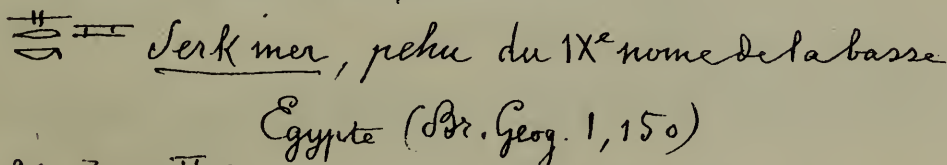 Serk mer, pehu du IXe nome de la basse
Egypte (Br. Geog. I, 150)